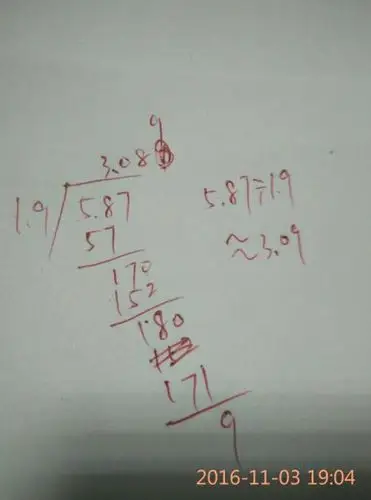 9
3.08
1.9 5.87 5.87÷1.9
57 ≈3.09
170
152
180
171
9
2016-11-03 19:04